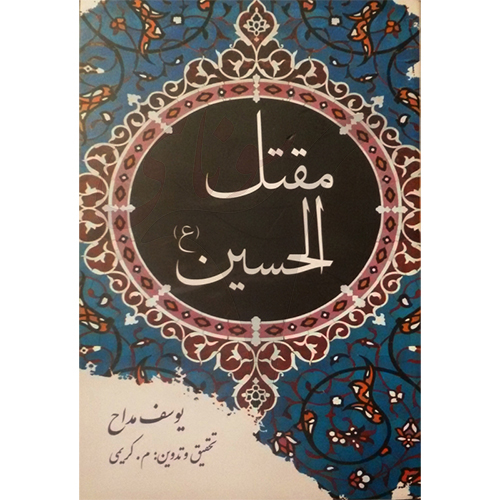 مقتل
الحسین
(ع)
یوسف مداح
تحقیق و تدوین: م. کریمی